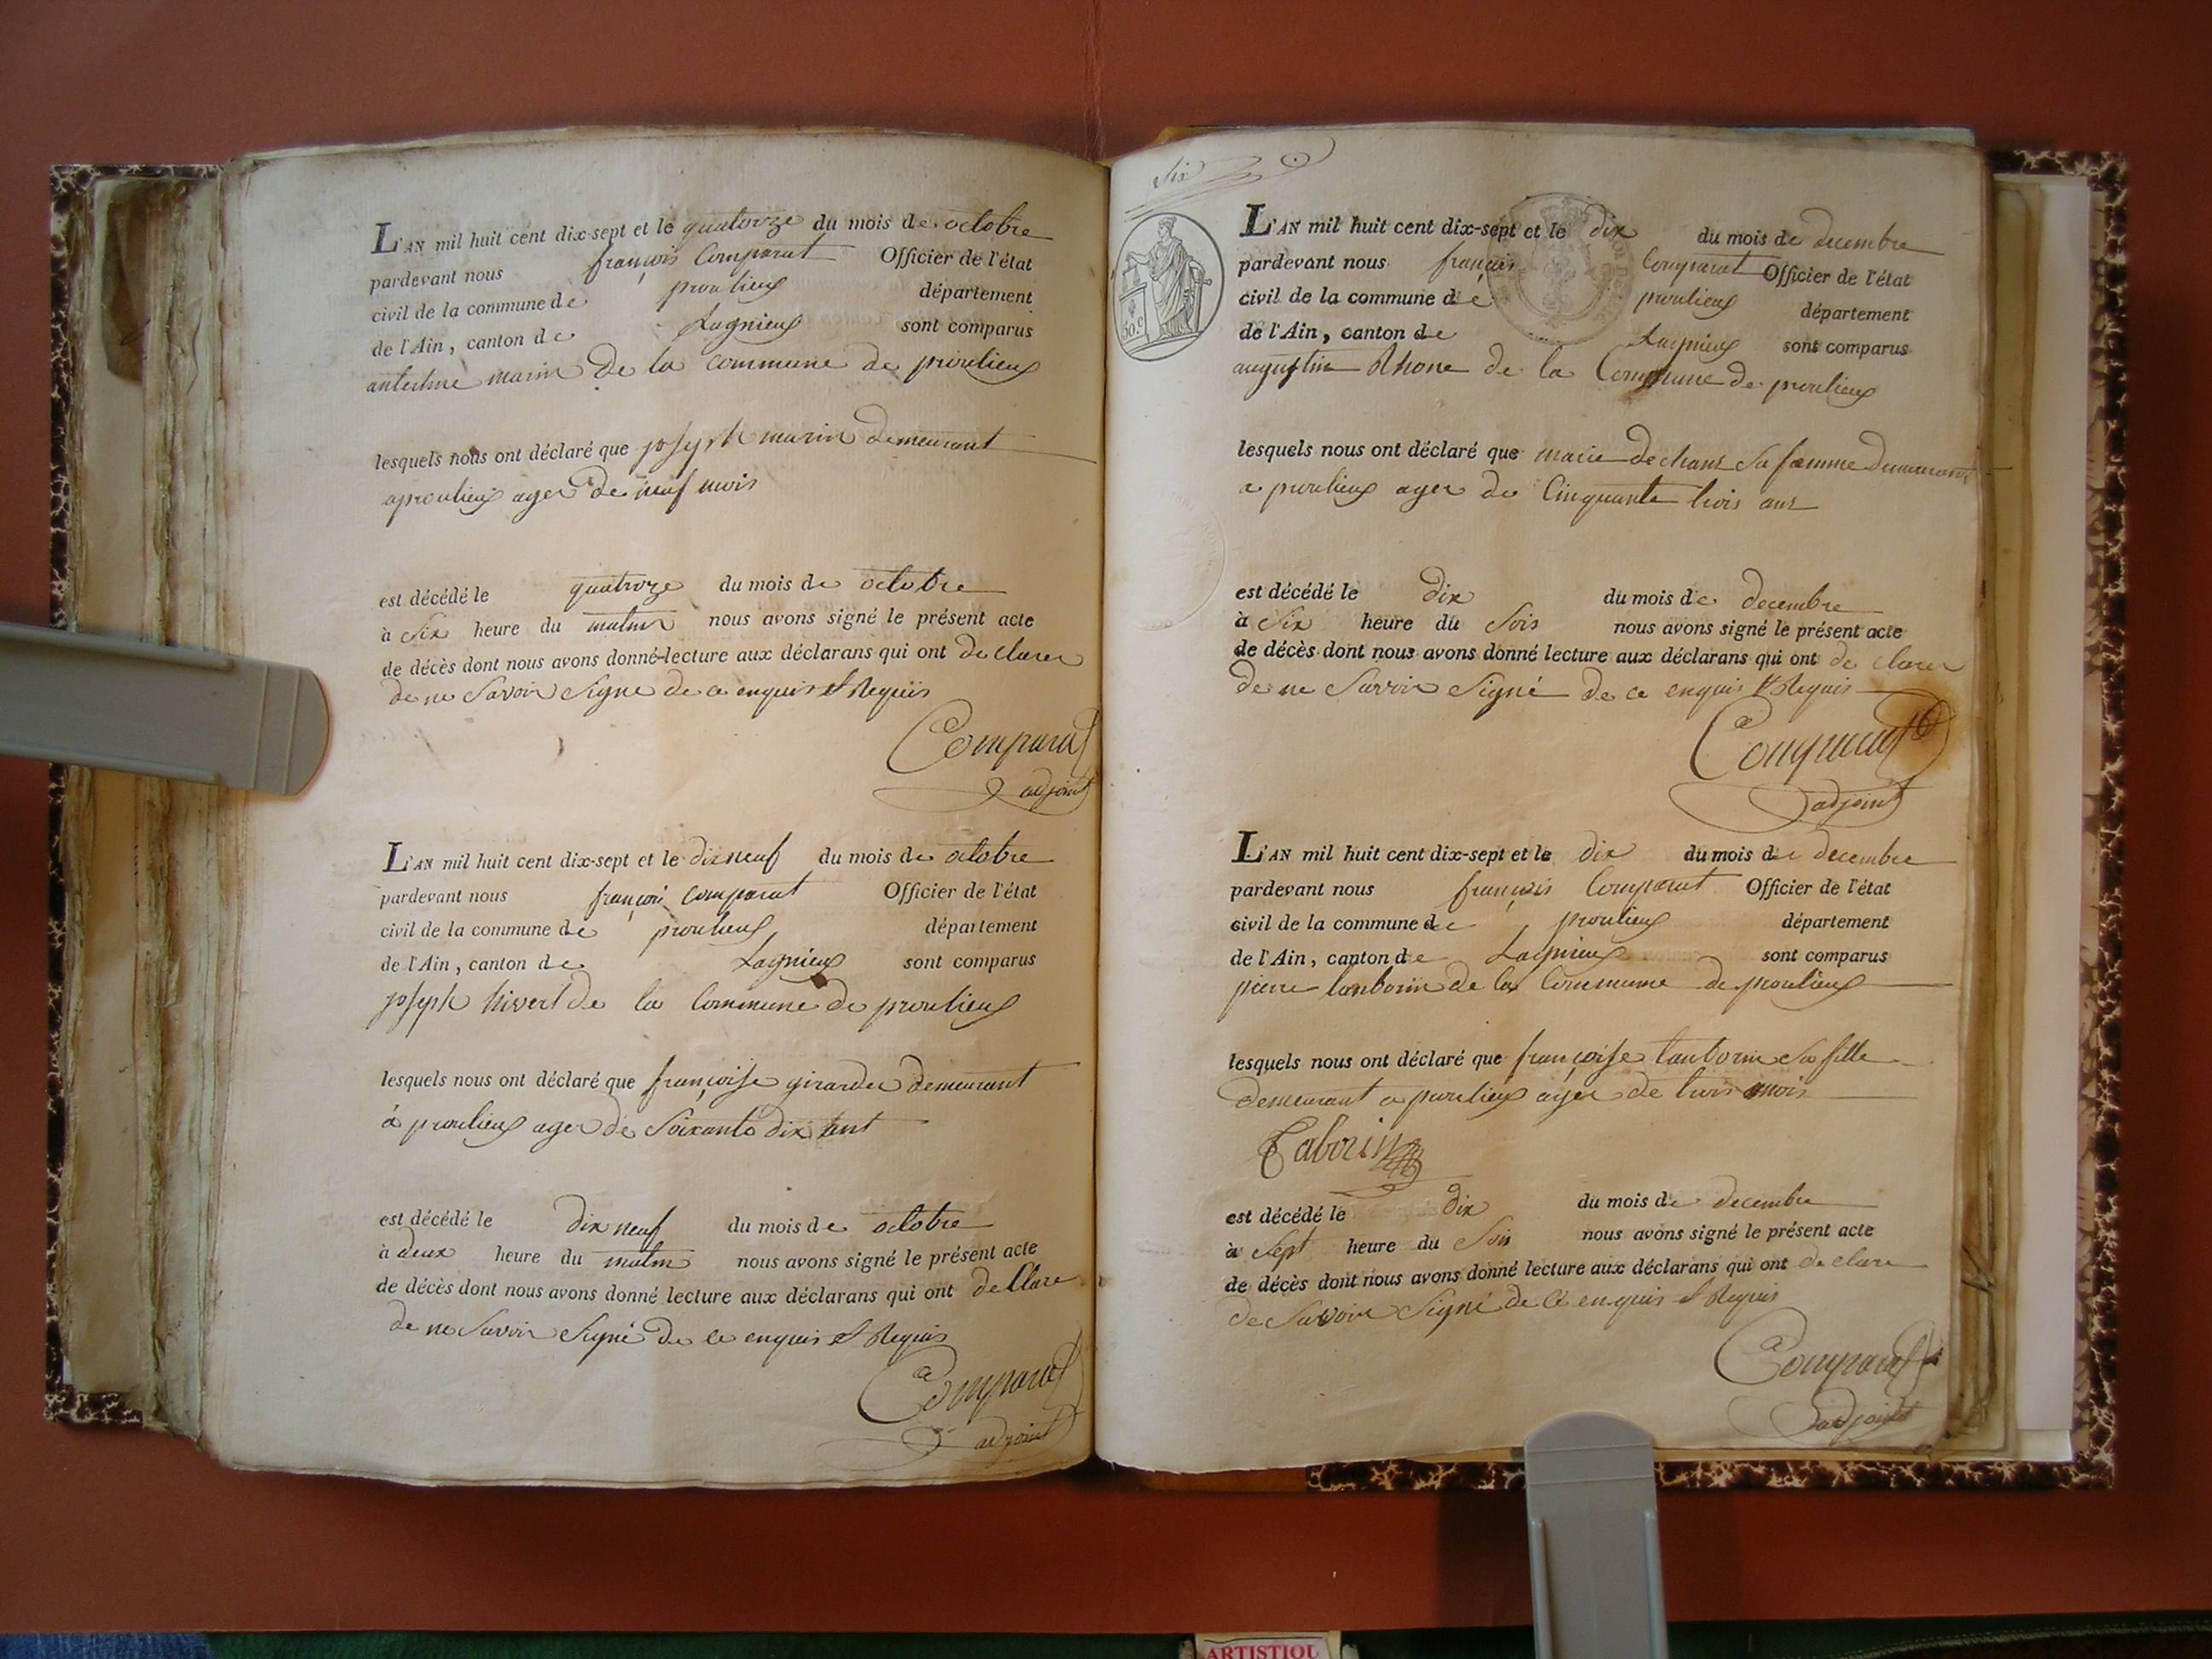 L'AN mil huit cent dix-sept et le quatorze du mois de octobre
pardevant nous françois Comparat Officier de l'état
civil de la commune de proulieu département
de l'Ain, canton de Lagnieu sont comparus
antelme marin de la commune de proulieu
lesquels nous ont déclaré que joseph marin demeurant
a proulieu ager de neuf mois
est décédé le quatroze du mois de octobre
à six heure du matin nous avons signé le présent acte
de décès dont nous avons donné lecture aux déclarans qui ont de clarer
de ne Savoir Signe de ce enquis et Requis
Comparat
adjoint
L'AN mil huit cent dix-sept et le dix neuf du mois de octobre
pardevant nous françois comparat Officier de l'état
civil de la commune de proulieu département
de l'Ain, canton de Lagnieu sont comparus
joseph hivert de la Commune de proulieu
lesquels nous ont déclaré que françoise girarder demeurant
à proulieu ager de Soixante dix ant
est décédé le dix neuf du mois de octobre
à deux heure du matin nous avons signé le présent acte
de décès dont nous avons donné lecture aux déclarans qui ont de Clare
de ne Savoir Signé de ce enquis et Requis
Comparat
adjoint
Six
50.c
L'AN mil huit cent dix-sept et le dix du mois de decembre
pardevant nous françois Comparat Officier de l'état
civil de la commune de proulieu département
de l'Ain, canton de Lagnieu sont comparus
augustin Rhone de la Commune de proulieu
lesquels nous ont déclaré que marie dechanz Sa famme demeurant
a proulieu ager de Cinquante trois ans
est décédé le dix du mois de decembre
à Six heure du Soir nous avons signé le présent acte
de décès dont nous avons donné lecture aux déclarans qui ont de clarer
de ne Savoir Signé de ce enquis et Requis
Comparat
adjoint
L'AN mil huit cent dix-sept et le dix du mois de decembre
pardevant nous françois Comparat Officier de l'état
civil de la commune de proulieu département
de l'Ain, canton de Lagnieu sont comparus
pierre tanborin de la Commune de proulieu
lesquels nous ont déclaré que françoise tanborin Sa fille
demeurant a proulieu ager de trois mois
Taborin
est décédé le dix du mois de decembre
à Sept heure du Soir nous avons signé le présent acte
de décès dont nous avons donné lecture aux déclarans qui ont de clare
de Savoir Signé de ce enquis et Requis
Comparat
adjoint
ARTISTIQU